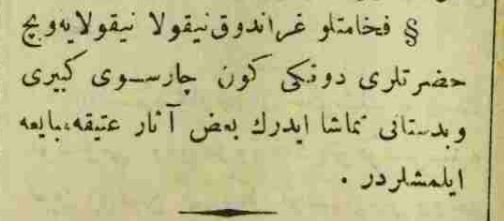 § فخامتلو غراندوق نيقولا نيقولايەويچ
حضرتلری دونكی كون چارسوی كبيری
وبدستانی تماشا ايدرك بعض آثار عتيقه مبايعه
ايلمشلردر .